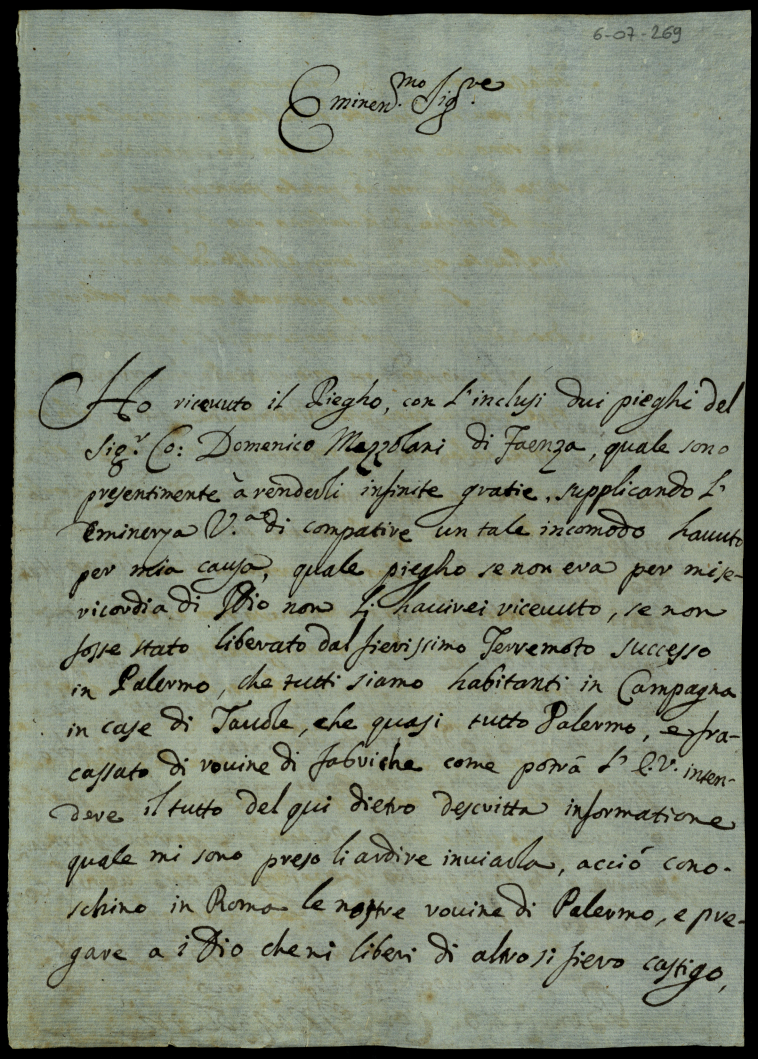 6-07-269
Eminen.mo Sig.re
Ho riceuuto il Piegho, con l'inclusi dui pieghi del
Sig.r Co: Domenico Mazzolani di Faenza, quale sono
presentimente à renderli infinite gratie, supplicando l'
Eminenza V.a di compatire un tale incomodo hauuto
per mia causa, quale piegho se non era per mise-
ricordia di Dio non l'hauirei riceuuto, se non
fosse stato liberato dal fierissimo Terremoto successo
in Palermo, che tutti siamo habitanti in Campagna
in case di Tauole, che quasi tutto Palermo, e fra-
cassato di rouine di fabriche come potrà l'E.V. inten-
dere il tutto del qui dietro descritta informatione
quale mi sono preso li ardire inuiarla, acciò cono-
schino in Roma le nostre rouine di Palermo, e pre-
gare a i Dio che ni liberi di altro si fiero castigo,